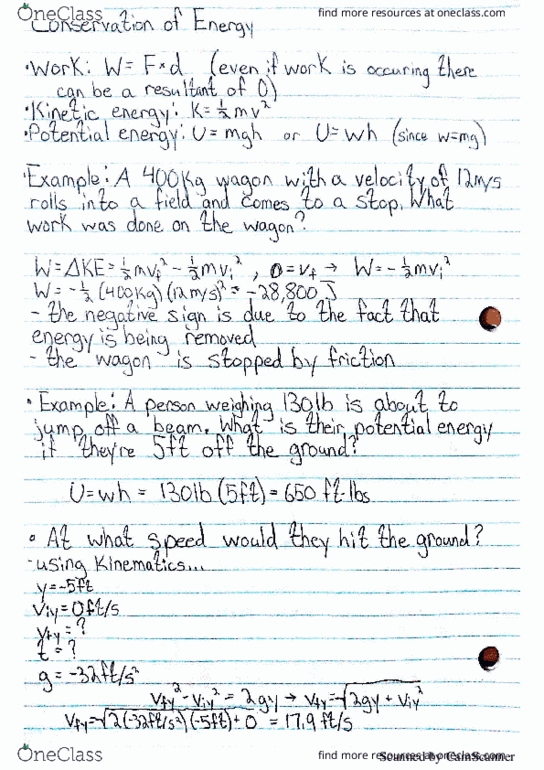 OneClass
find more resources at oneclass.com
Conservation of Energy
•Work: W = F×d (even if work is occuring there
can be a resultant of 0)
•Kinetic energy: K = ½mv²
•Potential energy: U = mgh or U = wh (since w=mg)
•Example: A 400Kg wagon with a velocity of 12m/s
rolls into a field and comes to a stop. What
work was done on the wagon?
W = ΔKE = ½mv_f² - ½mv_i² , 0 = v_f → W = -½mv_i²
W = -½(400Kg)(12m/s)² = -28,800 J
- the negative sign is due to the fact that
energy is being removed
- the wagon is stopped by friction
• Example: A person weighing 130lb is about to
jump off a beam. What is their potential energy
if they're 5ft off the ground?
U = wh = 130lb (5ft) = 650 ft·lbs
• At what speed would they hit the ground?
-using Kinematics...
y = -5ft
v_iy = 0ft/s
v_fy = ?
t = ?
g = -32ft/s²
v_fy² - v_iy² = 2gy → v_fy = √2gy + v_iy²
v_fy = √2(-32ft/s²)(-5ft) + 0 = 17.9 ft/s
OneClass
find more resources at oneclass.com
Scanned by CamScanner